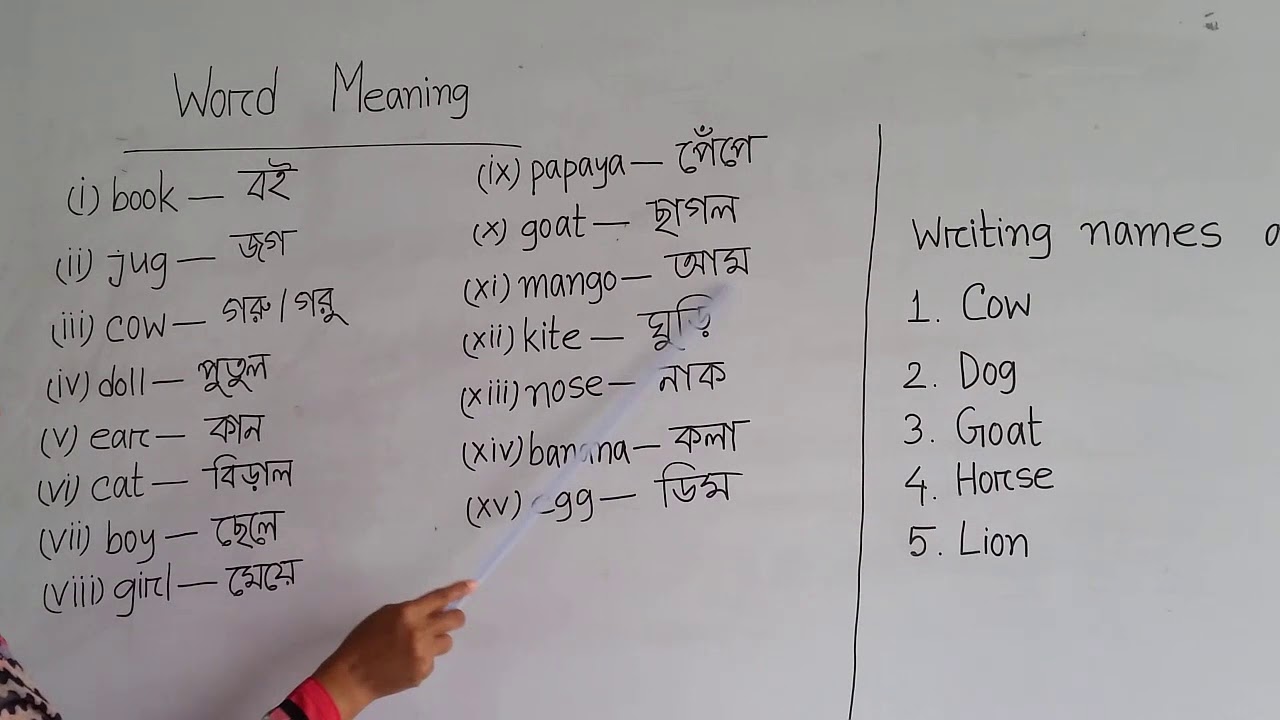 Word Meaning
(i) book — বই
(ii) jug — জগ
(iii) cow — গরু / গরূ
(iv) doll — পুতুল
(v) ear — কান
(vi) cat — বিড়াল
(vii) boy — ছেলে
(viii) girl — মেয়ে
(ix) papaya — পেঁপে
(x) goat — ছাগল
(xi) mango — আম
(xii) kite — ঘুড়ি
(xiii) nose — নাক
(xiv) banana — কলা
(xv) egg — ডিম
Writing names
1. Cow
2. Dog
3. Goat
4. Horse
5. Lion